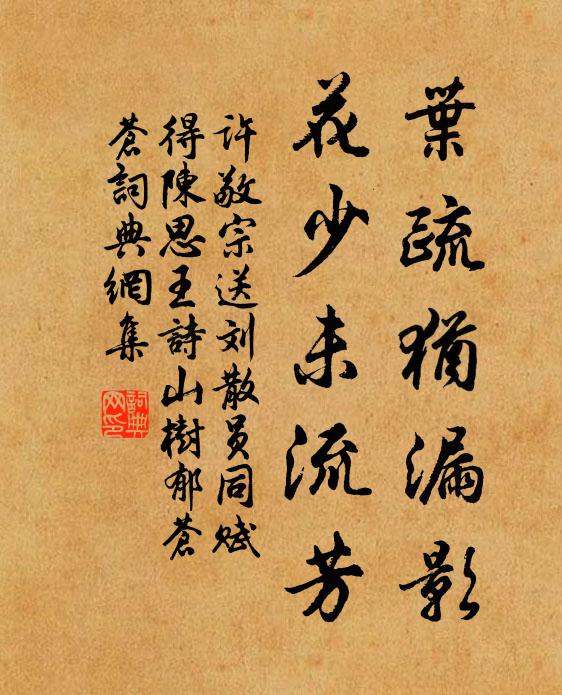 葉疏猶漏影
花少未流芳
許敬宗送刘散員同賦
得陳思王詩山樹郁蒼
蒼詞典網集
詞典网印